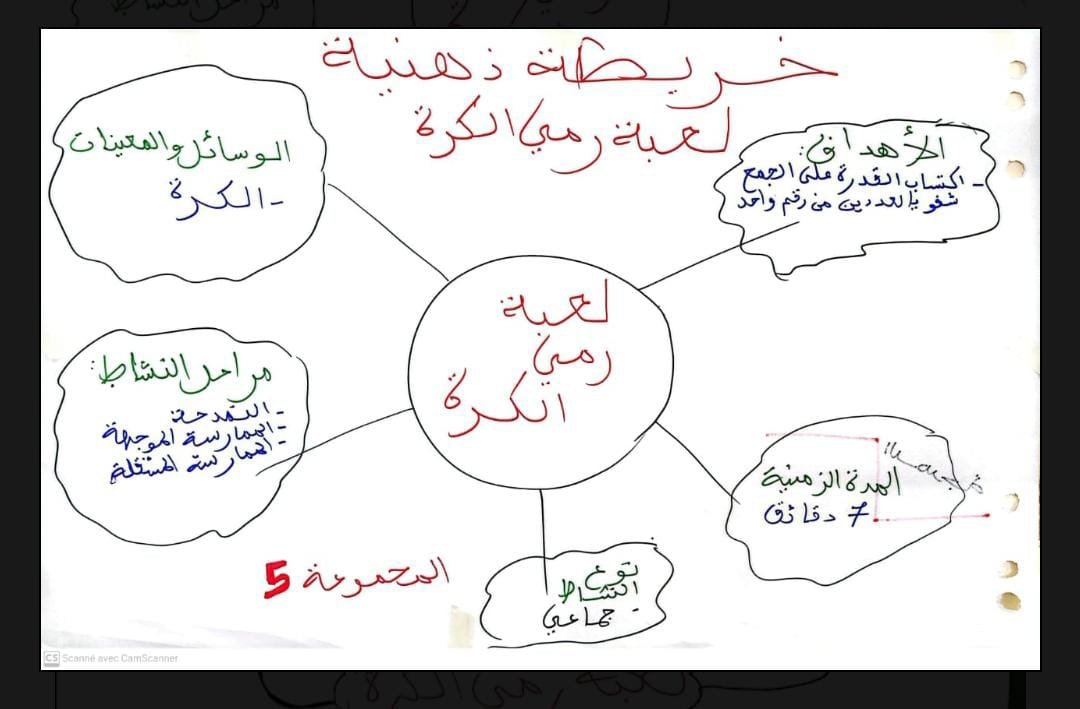 خريطة ذهنية
لعبة رمي الكرة
الأهداف:
- اكتساب القدرة على الجمع
شفويا لعددين من رقم واحد
الوسائل والمعينات
- الكرة
لعبة
رمي
الكرة
مراحل النشاط:
- النمذجة
- الممارسة الموجهة
- الممارسة المستقلة
المدة الزمنية
7 دقائق
نوع
النشاط
- جماعي
المجموعة 5
CS Scanné avec CamScanner